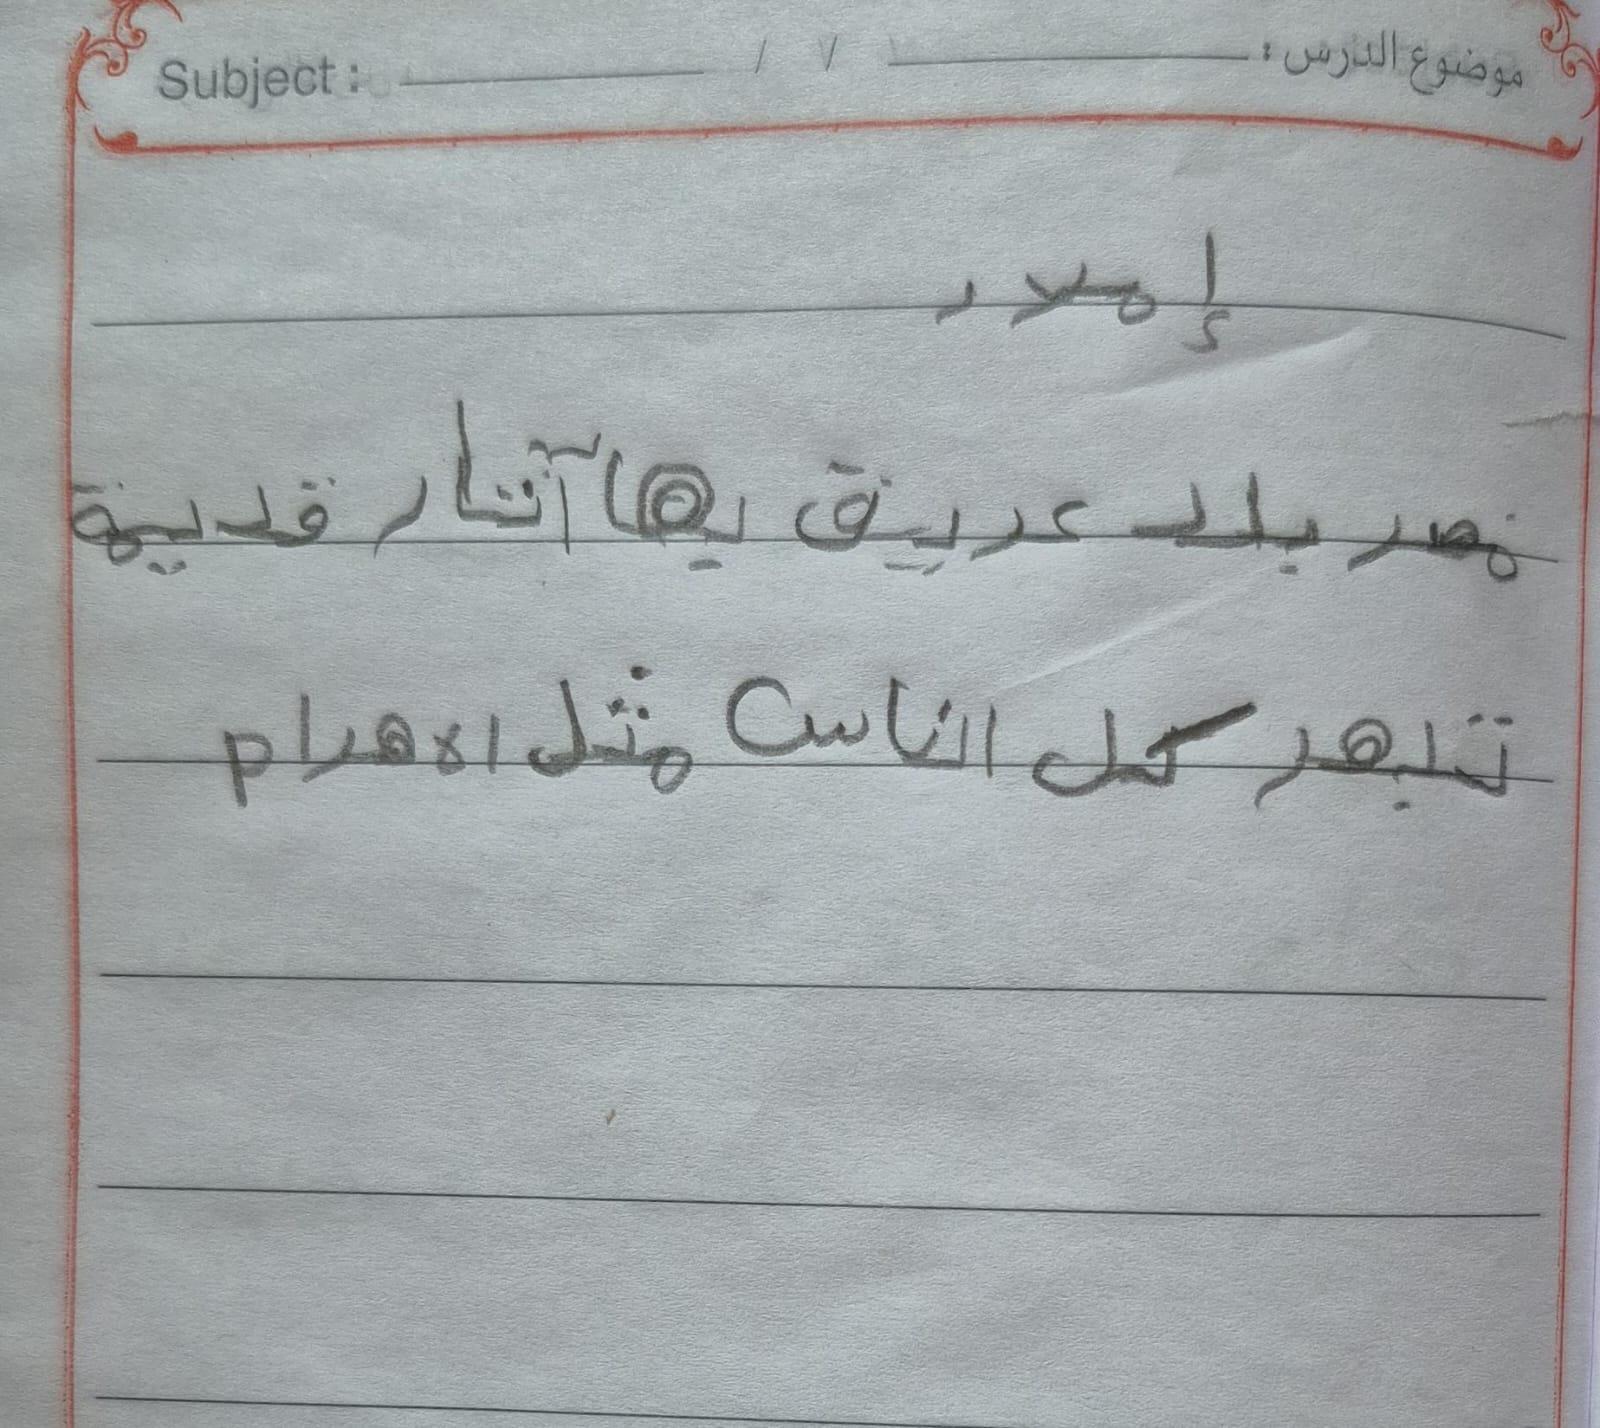 Subject: / ٧ موضوع الدرس:
إملاء
مصر بلد عريق بها آثار قديمة
تبهر كل الناس مثل الاهرام